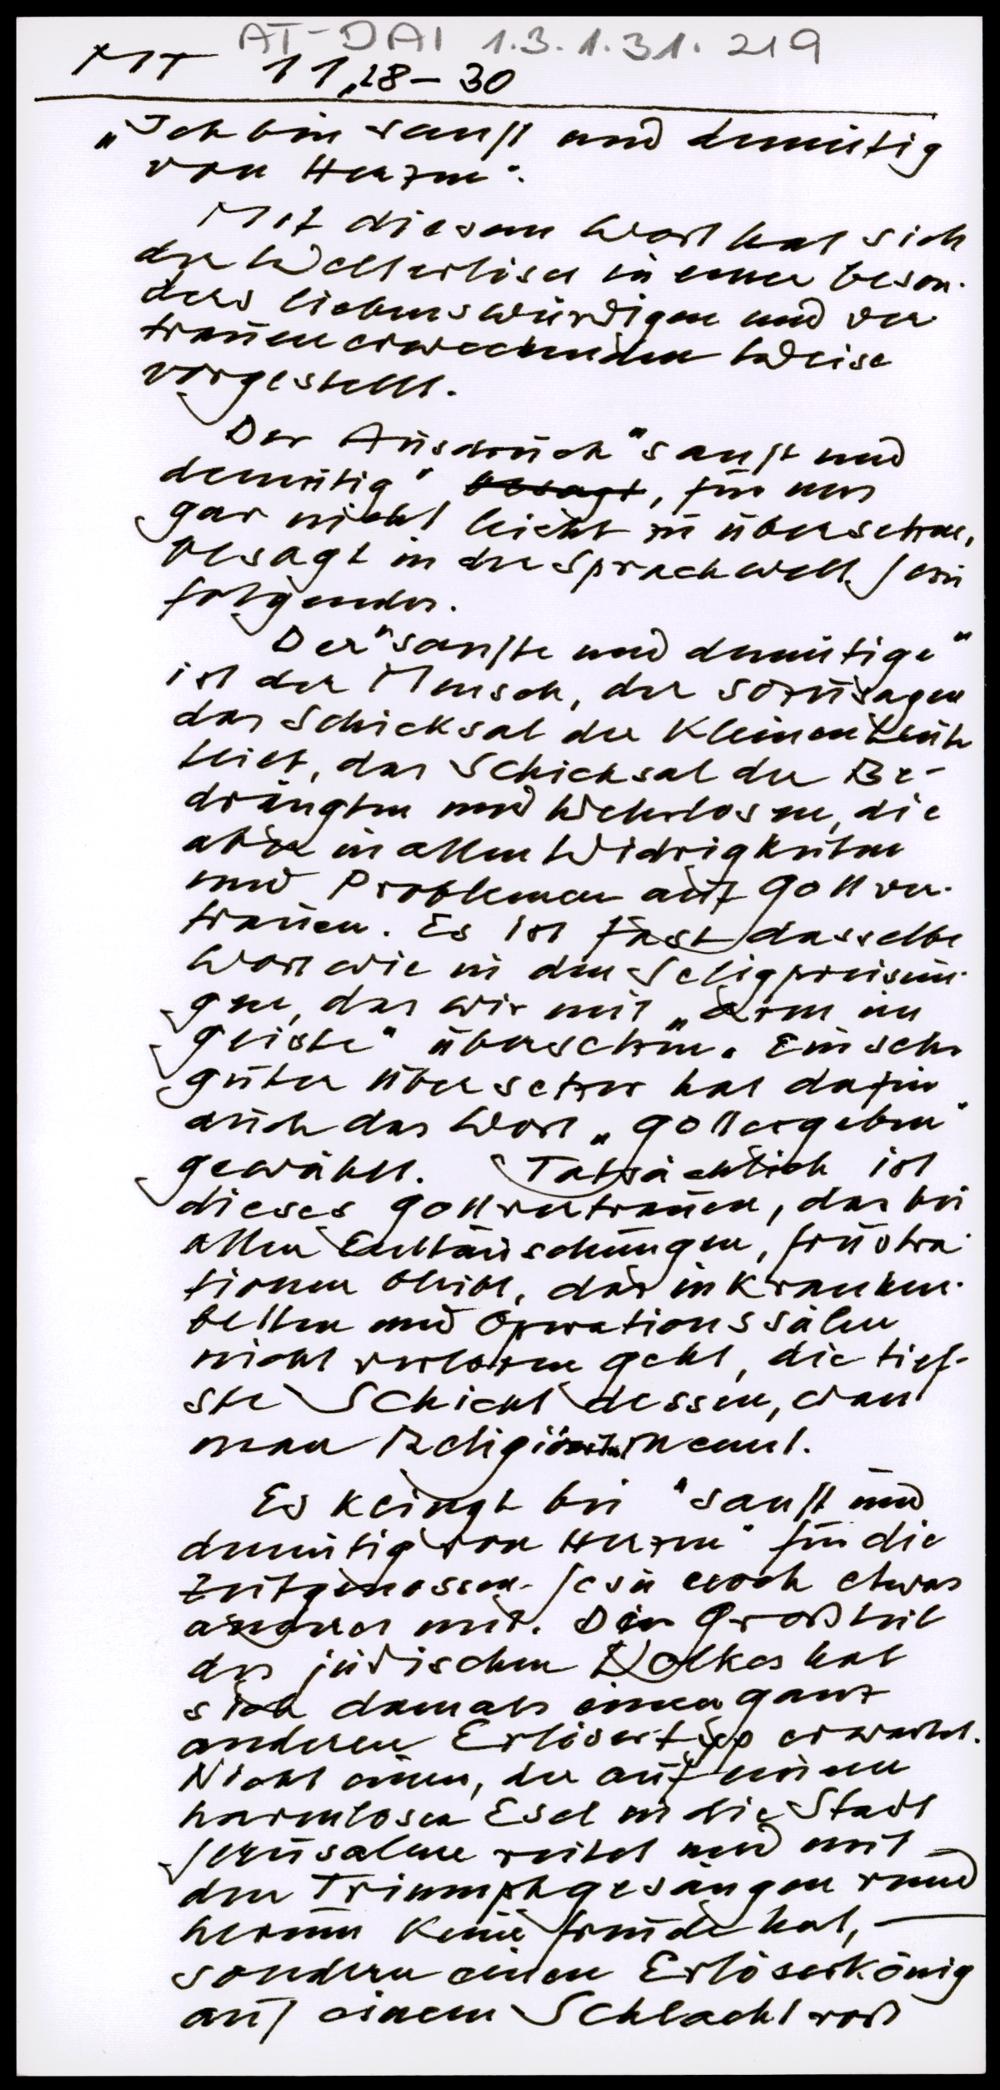 AT-DAI 1.3.1.31.219
MT 11,28-30
„Ich bin sanft und demütig
von Herzen".
Mit diesem Wort hat sich
der Welterlöser in einer beson-
ders liebenswürdigen und ver-
trauenerweckenden Weise
vorgestellt.
Der Ausdruck "sanft und
demütig" besagt, für uns
gar nicht leicht zu übersetzen,
besagt in der Sprachwelt Jesu
folgendes.
Der "sanfte und demütige"
ist der Mensch, der sozusagen
das Schicksal der Kleinen Leute
teilt, das Schicksal der Be-
drängten und Wehrlosen, die
aber in allen Widrigkeiten
und Problemen auf Gott ver-
trauen. Es ist fast dasselbe
Wort wie in den Seligpreisun-
gen, das wir mit „Arm im
Geiste" übersetzen. Ein sehr
guter Übersetzer hat dafür
auch das Wort „gottergeben"
gewählt. Tatsächlich ist
dieses Gottvertrauen, das bei
allen Enttäuschungen, Frustra-
tionen bleibt, das in Kranken-
betten und Operationssälen
nicht verloren geht, die tief-
ste Schicht dessen, was
man Religiös nennt.
Es klingt bei "sanft und
demütig von Herzen" für die
Zeitgenossen Jesu noch etwas
anderes mit. Der Großteil
des jüdischen Volkes hat
sich damals einen ganz
anderen Erlösertyp erwartet.
Nicht einen, der auf einem
harmlosen Esel in die Stadt
Jerusalem reitet und mit
den Triumphgesängen rund
herum keine Freude hat,
sondern einen Erlöserkönig
auf einem Schlachtroß